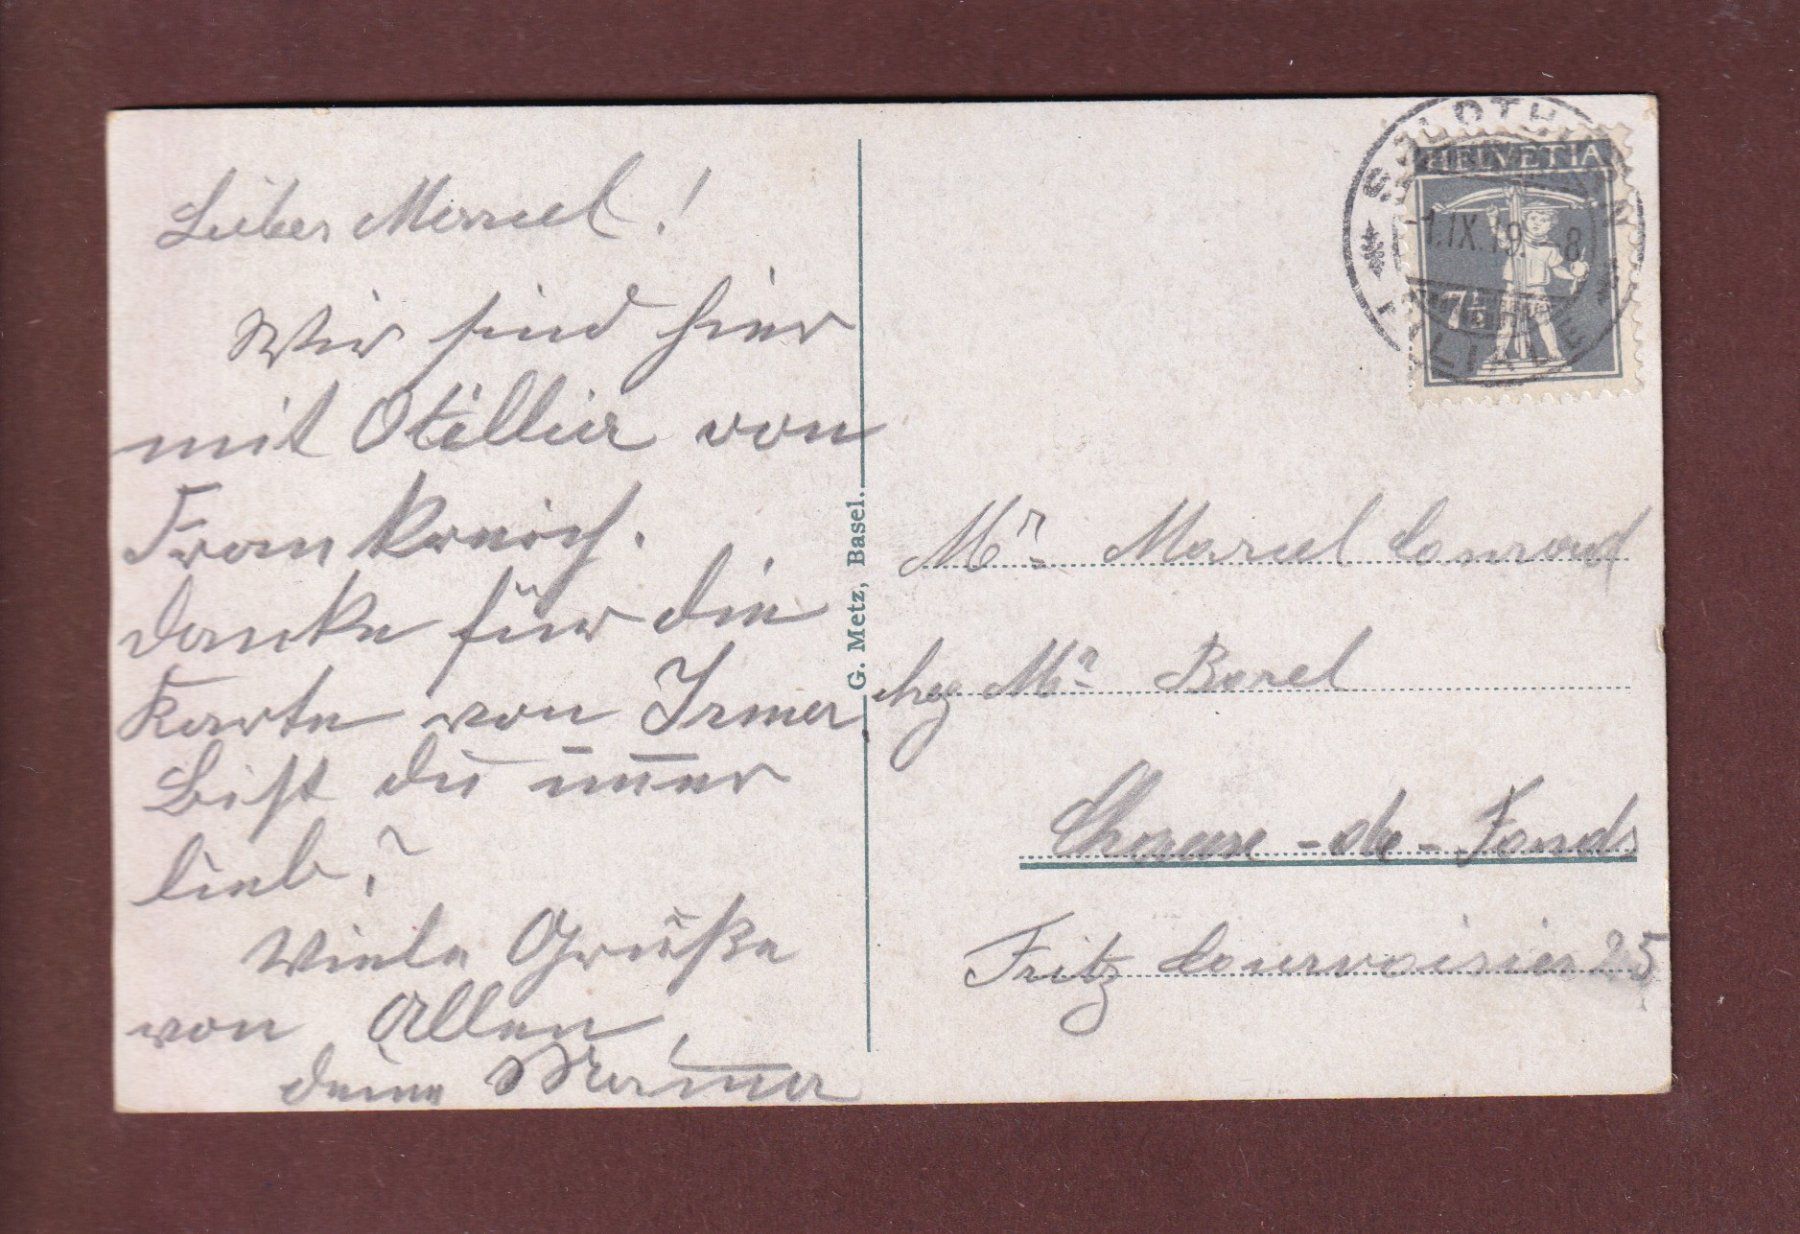 Lieber Marcel!
Wir sind hier
mit Otillia von
Frankreich.
Danke für die
Karte von Irma
Bist du im̅er
lieb?
Viele Grüße
von Allen,
deine Mam̅a
G. Metz, Basel.
SOLOTHURN
1.IX.19. 8
FILIALE
HELVETIA
7½
Mr. Marcel Conrad
chez Mr. Borel
Chaux-de-Fonds
Fritz Courvoisier 25